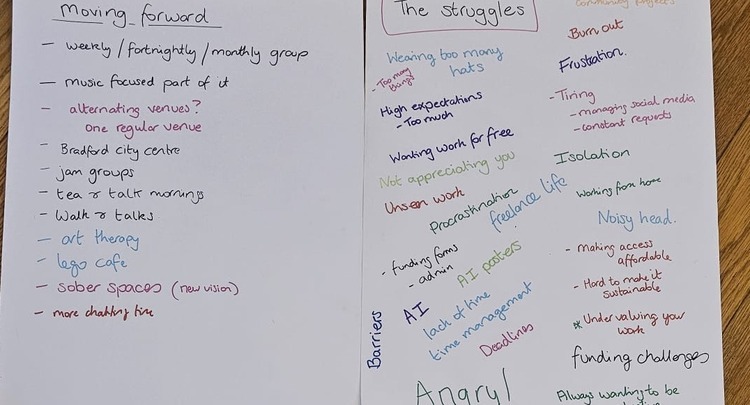 Moving forward
- weekly/fortnightly/monthly group
- music focused part of it
- alternating venues?
one regular venue
- Bradford city centre
- jam groups
- tea & talk mornings
- Walk & talks
- art therapy
- lego cafe
- sober spaces (new vision)
- more chatting time
The struggles
Wearing too many
hats
- Too many
Bands
High expectations
- Too much
Wanting work for free
Not appreciating you
Unseen work
Procrastination
freelance life
- funding forms
- admin
AI posters
AI
lack of time
time management
Deadlines
Barriers
Angry!
community projects
Burn out
Frustration.
- Tiring
- managing social media
- constant requests
Isolation
Working from home
Noisy head.
- Making access
affordable
- Hard to make it
sustainable
* Undervaluing your
work
funding challenges
Always wanting to be